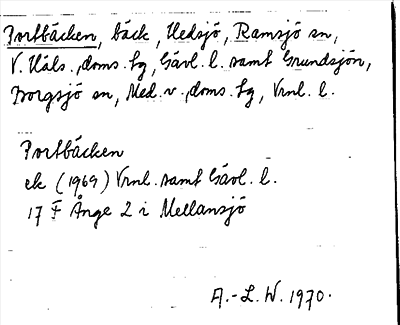 Fortbäcken, bäck, Hedsjö, Ramsjö sn,
V. Häls., doms. fg, Gävl. l. samt Grundsjön,
Borgsjö sn, Med. v., doms. fg, Vrnl. l.
Fortbäcken
ek (1969) Vrnl. samt Gävl. l.
17 F Ånge 2 i Mellansjö
A.-L. W. 1970.